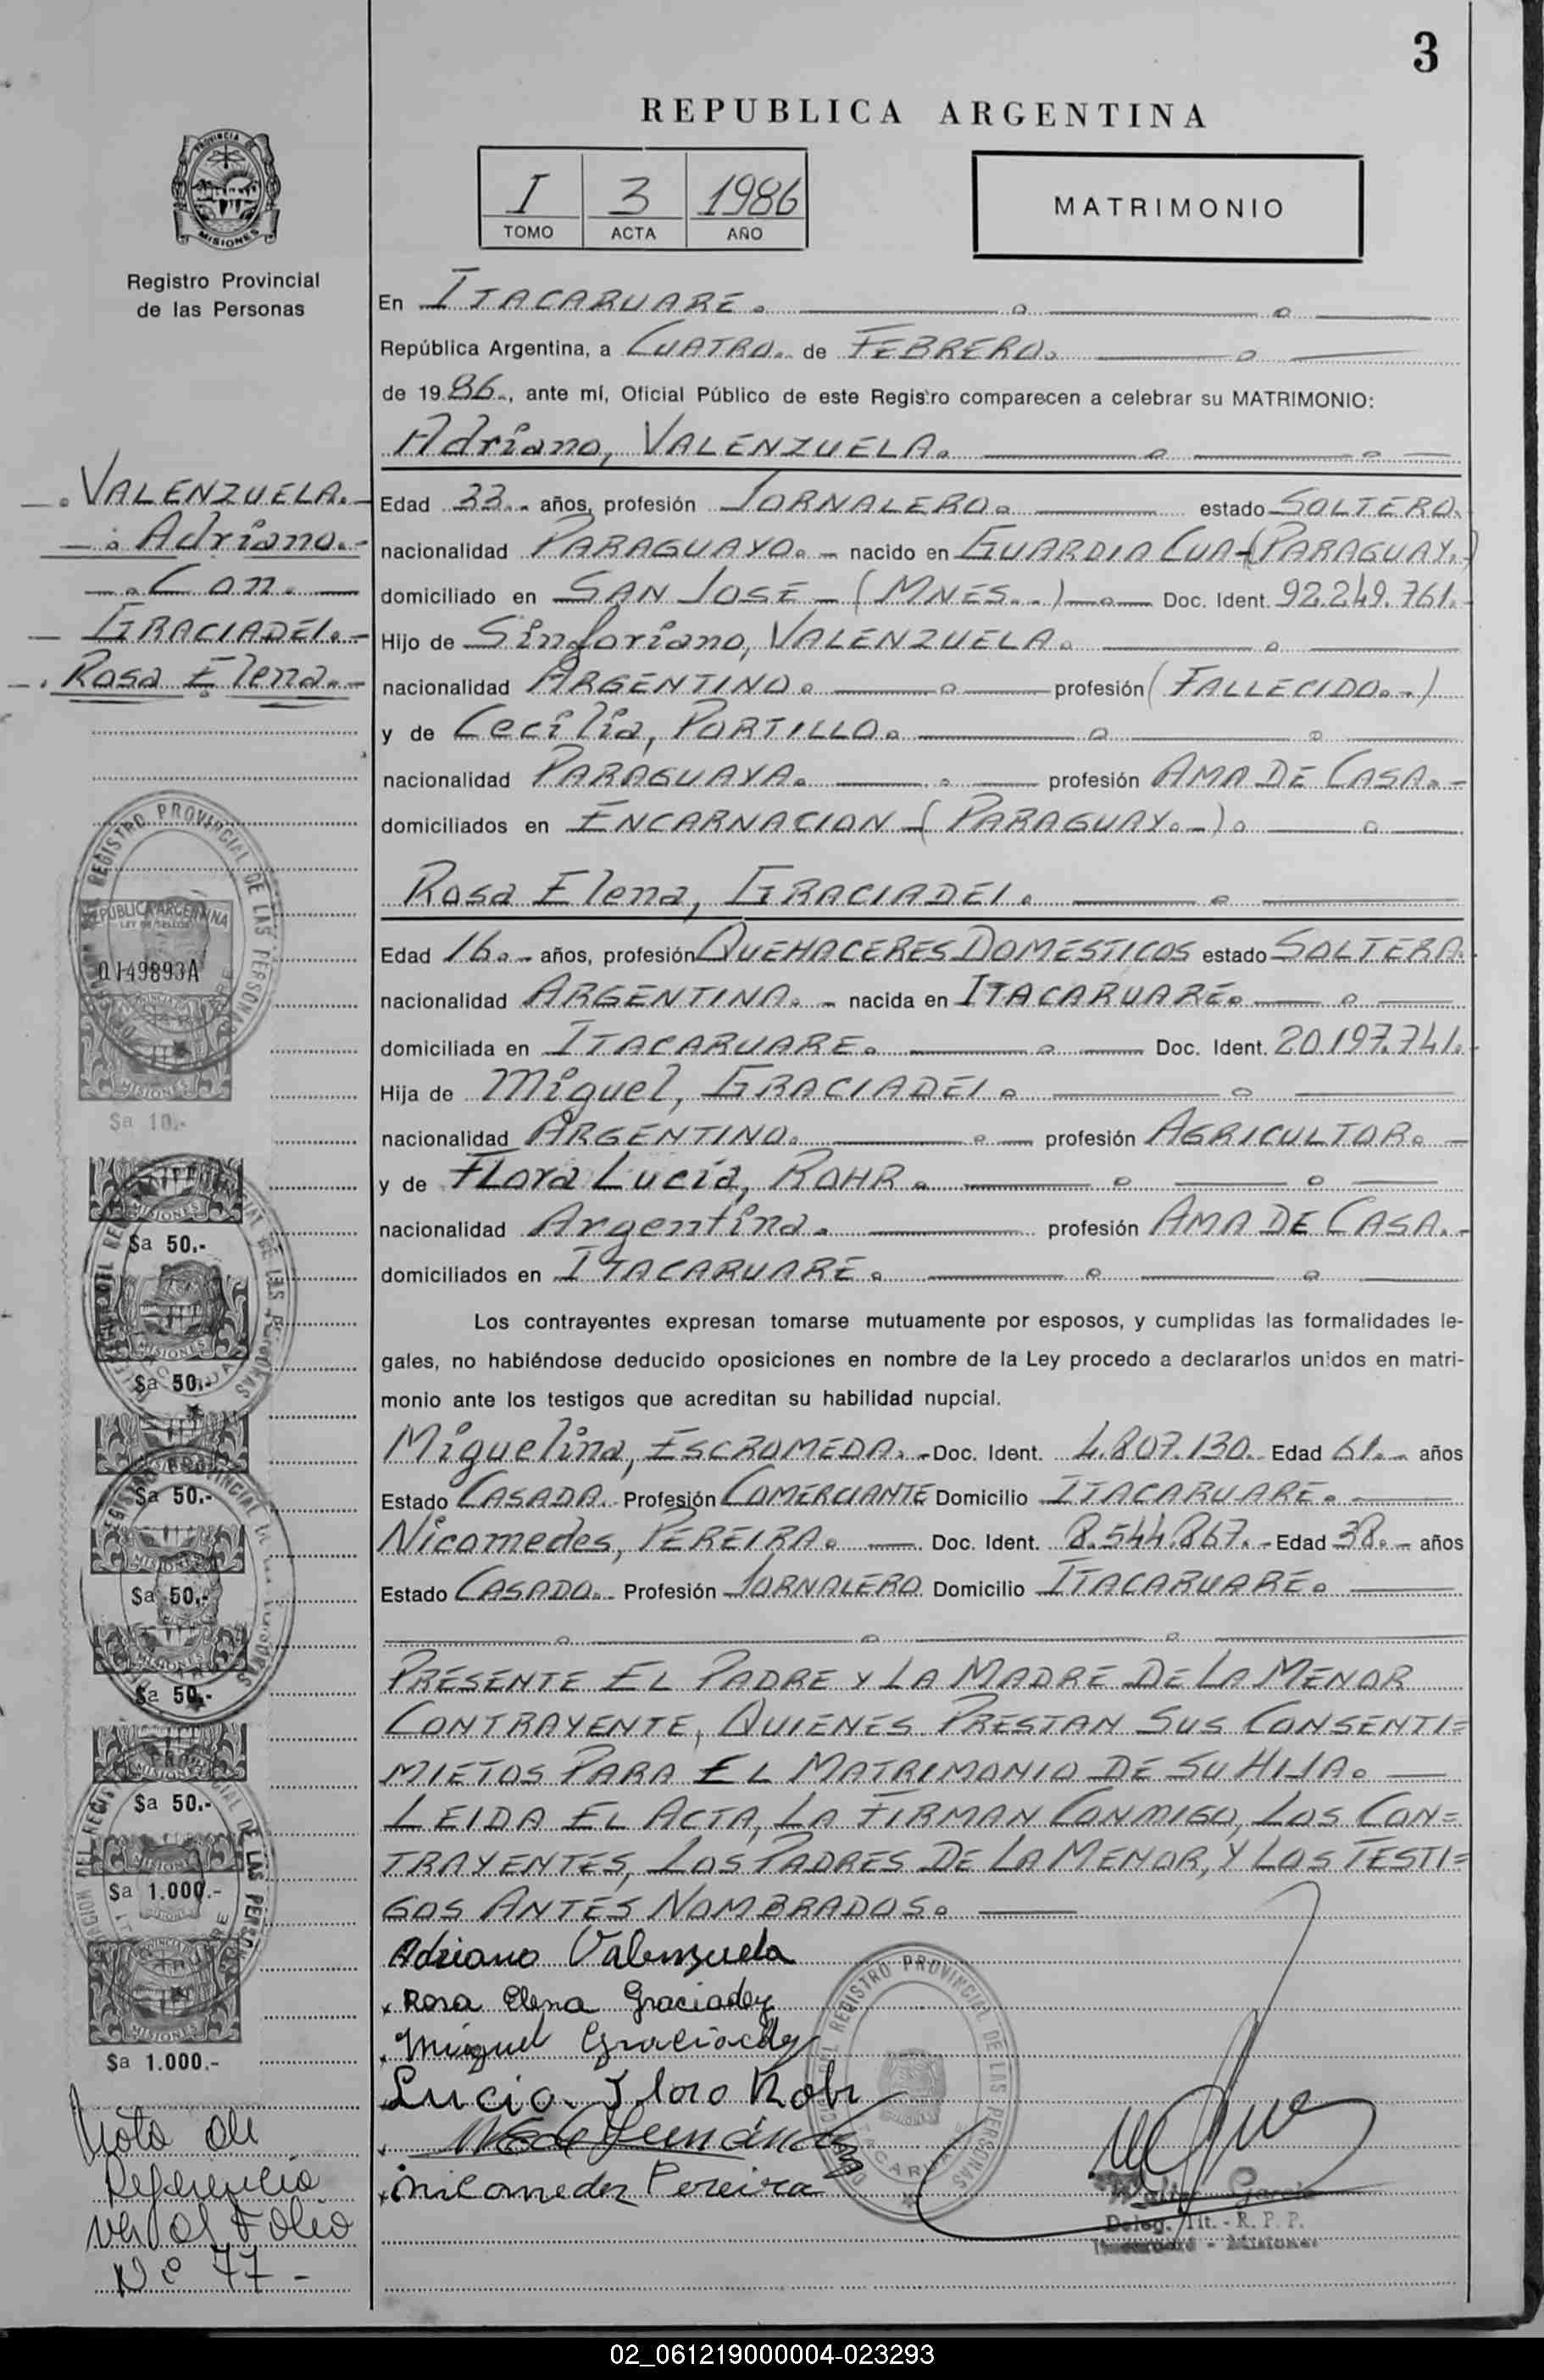 3
REPUBLICA ARGENTINA
I 3 1986
TOMO ACTA AÑO
MATRIMONIO
PROVINCIA DE
MISIONES
Registro Provincial
de las Personas
En ITACARUARE.
República Argentina, a CUATRO. de FEBRERO.
de 1986., ante mí, Oficial Público de este Registro comparecen a celebrar su MATRIMONIO:
Adriano, VALENZUELA.
VALENZUELA.-
Adriano.-
Con.
GRACIADEI.-
Rosa Elena.-
Edad 33.- años, profesión JORNALERO. estado SOLTERO.
nacionalidad PARAGUAYO.- nacido en GUARDIA CUA-(PARAGUAY.)
domiciliado en SAN JOSE-(MNES..) Doc. Ident. 92.249.761.-
Hijo de Sinforiano, VALENZUELA.
nacionalidad ARGENTINO. profesión (FALLECIDO.-)
y de Cecilia, PORTILLO.
nacionalidad PARAGUAYA. profesión AMA DE CASA.-
domiciliados en ENCARNACION-(PARAGUAY.-).
Rosa Elena, GRACIADEI.
Edad 16.- años, profesión QUEHACERES DOMESTICOS estado SOLTERA.
nacionalidad ARGENTINA.- nacida en ITACARUARE.
domiciliada en ITACARUARE. Doc. Ident. 20.197.741.-
Hija de Miguel, GRACIADEI.
nacionalidad ARGENTINO. profesión AGRICULTOR.-
y de FLora Lucia, ROHR.
nacionalidad Argentina. profesión AMA DE CASA.-
domiciliados en ITACARUARE.
Los contrayentes expresan tomarse mutuamente por esposos, y cumplidas las formalidades le-
gales, no habiéndose deducido oposiciones en nombre de la Ley procedo a declararlos unidos en matri-
monio ante los testigos que acreditan su habilidad nupcial.
Miguelina, ESCROMEDA.- Doc. Ident. 4.807.130.- Edad 61.- años
Estado CASADA. Profesión COMERCIANTE Domicilio ITACARUARE.
Nicomedes, PEREIRA. Doc. Ident. 8.544.867.- Edad 38.- años
Estado CASADO. Profesión JORNALERO Domicilio ITACARUARE.
PRESENTE EL PADRE Y LA MADRE DE LA MENOR
CONTRAYENTE, QUIENES PRESTAN SUS CONSENTI=
MIETOS PARA EL MATRIMONIO DE SU HIJA.
LEIDA EL ACTA, LA FIRMAN CONMIGO, LOS CON=
TRAYENTES, LOS PADRES DE LA MENOR, Y LOS TESTI=
GOS ANTES NOMBRADOS.
Adriano Valenzuela
Rosa Elena Graciadey
Miguel Graciadey
Lucia Flora Rohr
Nicomedez Pereira
REGISTRO PROVINCIAL DE LAS PERSONAS
Garcia
Deleg. Tit. - R. P. P.
Misiones
REGISTRO PROVINCIAL DE LAS PERSONAS
REPUBLICA ARGENTINA
LEY DE SELLOS
0149893A
MISIONES
$a 10.-
MISIONES
$a 50.-
MISIONES
$a 50.-
$a 50.-
MISIONES
$a 50.-
MISIONES
$a 50.-
MISIONES
$a 50.-
MISIONES
$a 1.000.-
MISIONES
$a 1.000.-
Nota de
Referencia
ver al Folio
Nº 77-
02_061219000004-023293